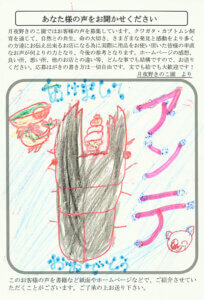 あなた様の声をお聞かせください
月夜野きのこ園ではお客様の声を募集しています。クワガタ・カブトムシ飼
育を通じて、自然との共生、命の大切さ、さまざまな発見と感動をより多く
の方達にお伝え出来るお店になる為に実際に用品をお使い頂いた皆様の率直
なお声が何よりの力となり、今後の参考となります。ホームページの感想、
良い所、悪い所、他のお店との違い等、どんな事でも結構ですので、お送り
下さい。応募はがきの書き方は一切自由です。文でも絵でも大歓迎です！
月夜野きのこ園 より
アンテ
このお客様の声を書籍など紙面やホームページなどで、ご紹介させていた
だくことがございます。ご了承の上お送り下さい。